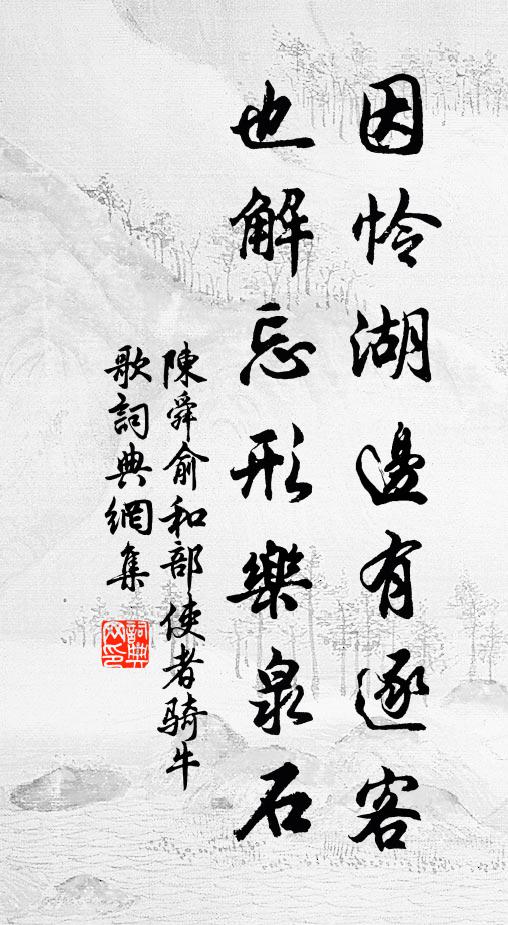 因憐湖邊有逐客
也解忘形樂泉石
陳舜俞和部使者騎牛
歌詞典網集
詞典網印